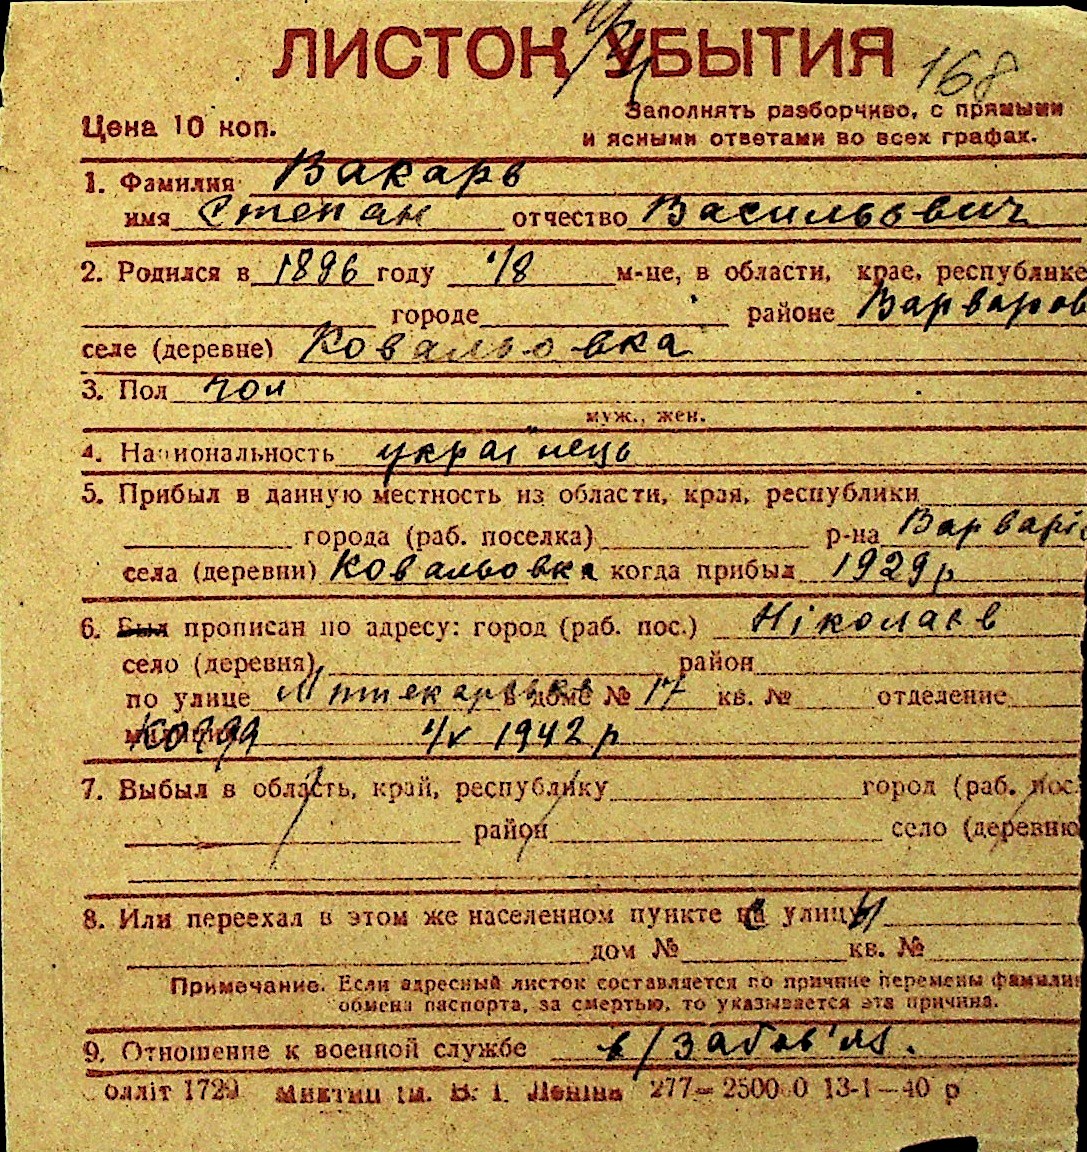 ЛИСТОК УБЫТИЯ
168
Цена 10 коп.
Заполнять разборчиво, с прямыми
и ясными ответами во всех графах.
1. Фамилия Вакарь
имя Степан отчество Васильович
2. Родился в 1896 году 18 м-це, в области, крае, республике
городе районе Варваров
селе (деревне) Ковальовка
3. Пол чол
муж., жен.
4. Национальность українець
5. Прибыл в данную местность из области, края, республики
города (раб. поселка) р-на Варварів
села (деревни) Ковальовка когда прибыл 1929 р
6. Был прописан по адресу: город (раб. пос.) Ніколаєв
село (деревня) район
по улице в доме № 17 кв. № отделение
милиции Когда 1942 р
7. Выбыл в область, край, республику город (раб. пос.
район село (деревню
8. Или переехал в этом же населенном пункте на улицу
дом № кв. №
Примечание. Если адресный листок составляется по причине перемены фамилии
обмена паспорта, за смертью, то указывается эта причина.
9. Отношение к военной службе в/забов'яз.
оллiт 1729 im. В. I. Ленiна 277— 2500 0 13-1—40 р